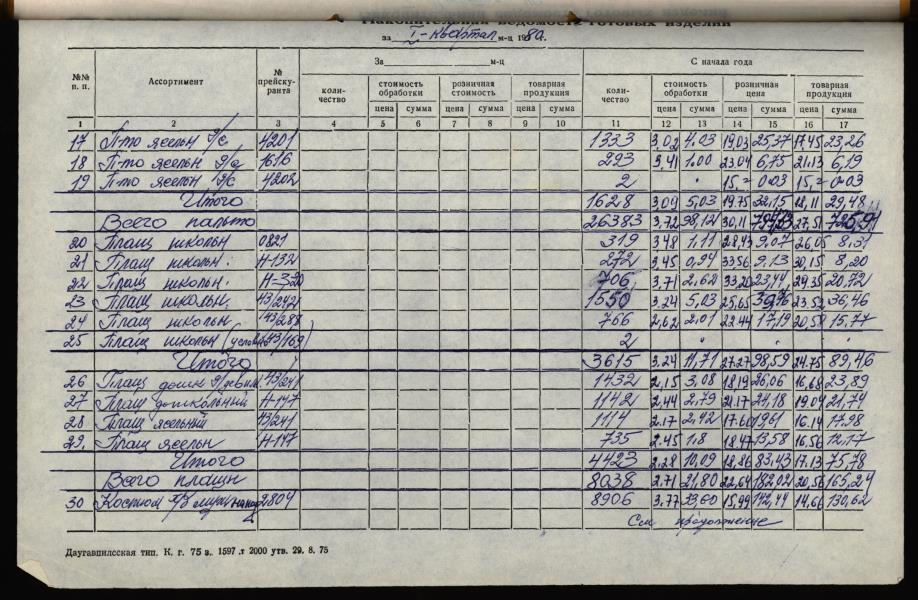 Накопительная ведомость готовых изделий
за I-квартал м-ц 1980 г.
№№ п. п. Ассортимент № прейску-ранта За м-ц С начала года
коли-чество стоимость обработки розничная стоимость товарная продукция коли-чество стоимость обработки розничная цена товарная продукция
цена сумма цена сумма цена сумма цена сумма цена сумма цена сумма
1 2 3 4 5 6 7 8 9 10 11 12 13 14 15 16 17
17 П-то ясельн д/с 4201 1333 3,02 4,03 19,03 25,37 17,45 23,26
18 П-то ясельн д/с 1616 293 3,41 1,00 23,04 6,75 21,13 6,19
19 П-то ясельн д/с 4202 2 15,= 0-03 15,= 0-03
Итого 1628 3,09 5,03 19,75 32,15 18,11 29,48
Всего пальто 26383 3,72 98,124 30,11 27,51
20 Плащ школьн 0821 319 3,48 1,11 28,43 9,07 26,05 8,31
21 Плащ школьн. Н-132 272 3,45 0,94 33,56 9,13 30,15 8,20
22 Плащ школьн. Н-320 706 3,71 2,62 33,20 23,44 29,35 20,72
23 Плащ школьн. 43/242 1550 3,24 5,03 25,65 39,76 23,52 36,46
24 Плащ школьн 43/288 766 2,62 2,01 22,44 17,19 20,58 15,77
25 Плащ школьн 43/169) 2
Итого 3615 3,24 11,71 27,27 98,59 24,75 89,46
26 Плащ дошк 43/241 1432 2,15 3,08 18,19 26,06 16,68 23,89
27 Плащ дошкольный Н-147 1142 2,44 2,79 21,17 24,18 19,04 21,74
28 Плащ ясельный 43/241 1114 2,17 2,42 17,60 19,61 16,14 17,98
29. Плащ ясельн Н-147 735 2,45 1,8 18,47 13,58 16,56 12,17
Итого 4423 2,28 10,09 18,86 83,43 17,13 75,78
Всего плащи 8038 2,71 21,80 22,64 182,02 20,56 165,24
30 Костюм 2804 8906 3,77 33,60 15,99 142,44 14,66 130,62
См продолжение
Даугавпилсская тип. К. г. 75 з. 1597 т 2000 утв. 29. 8. 75